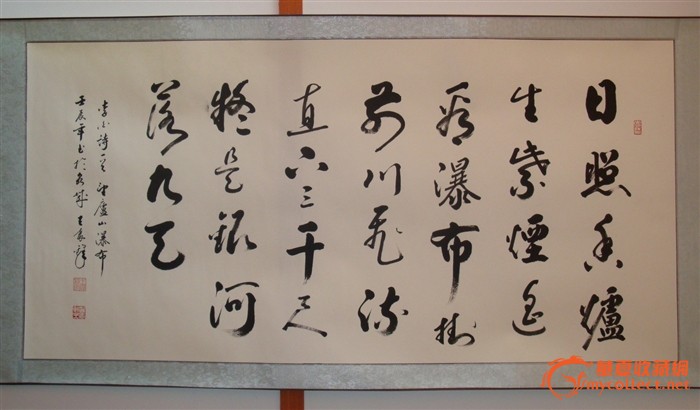 日照香爐
生紫煙遙
看瀑布掛
前川飛流
直下三千尺
疑是銀河
落九天
李白詩一首望廬山瀑布
壬辰年書於
華夏收藏網
mycollect.net